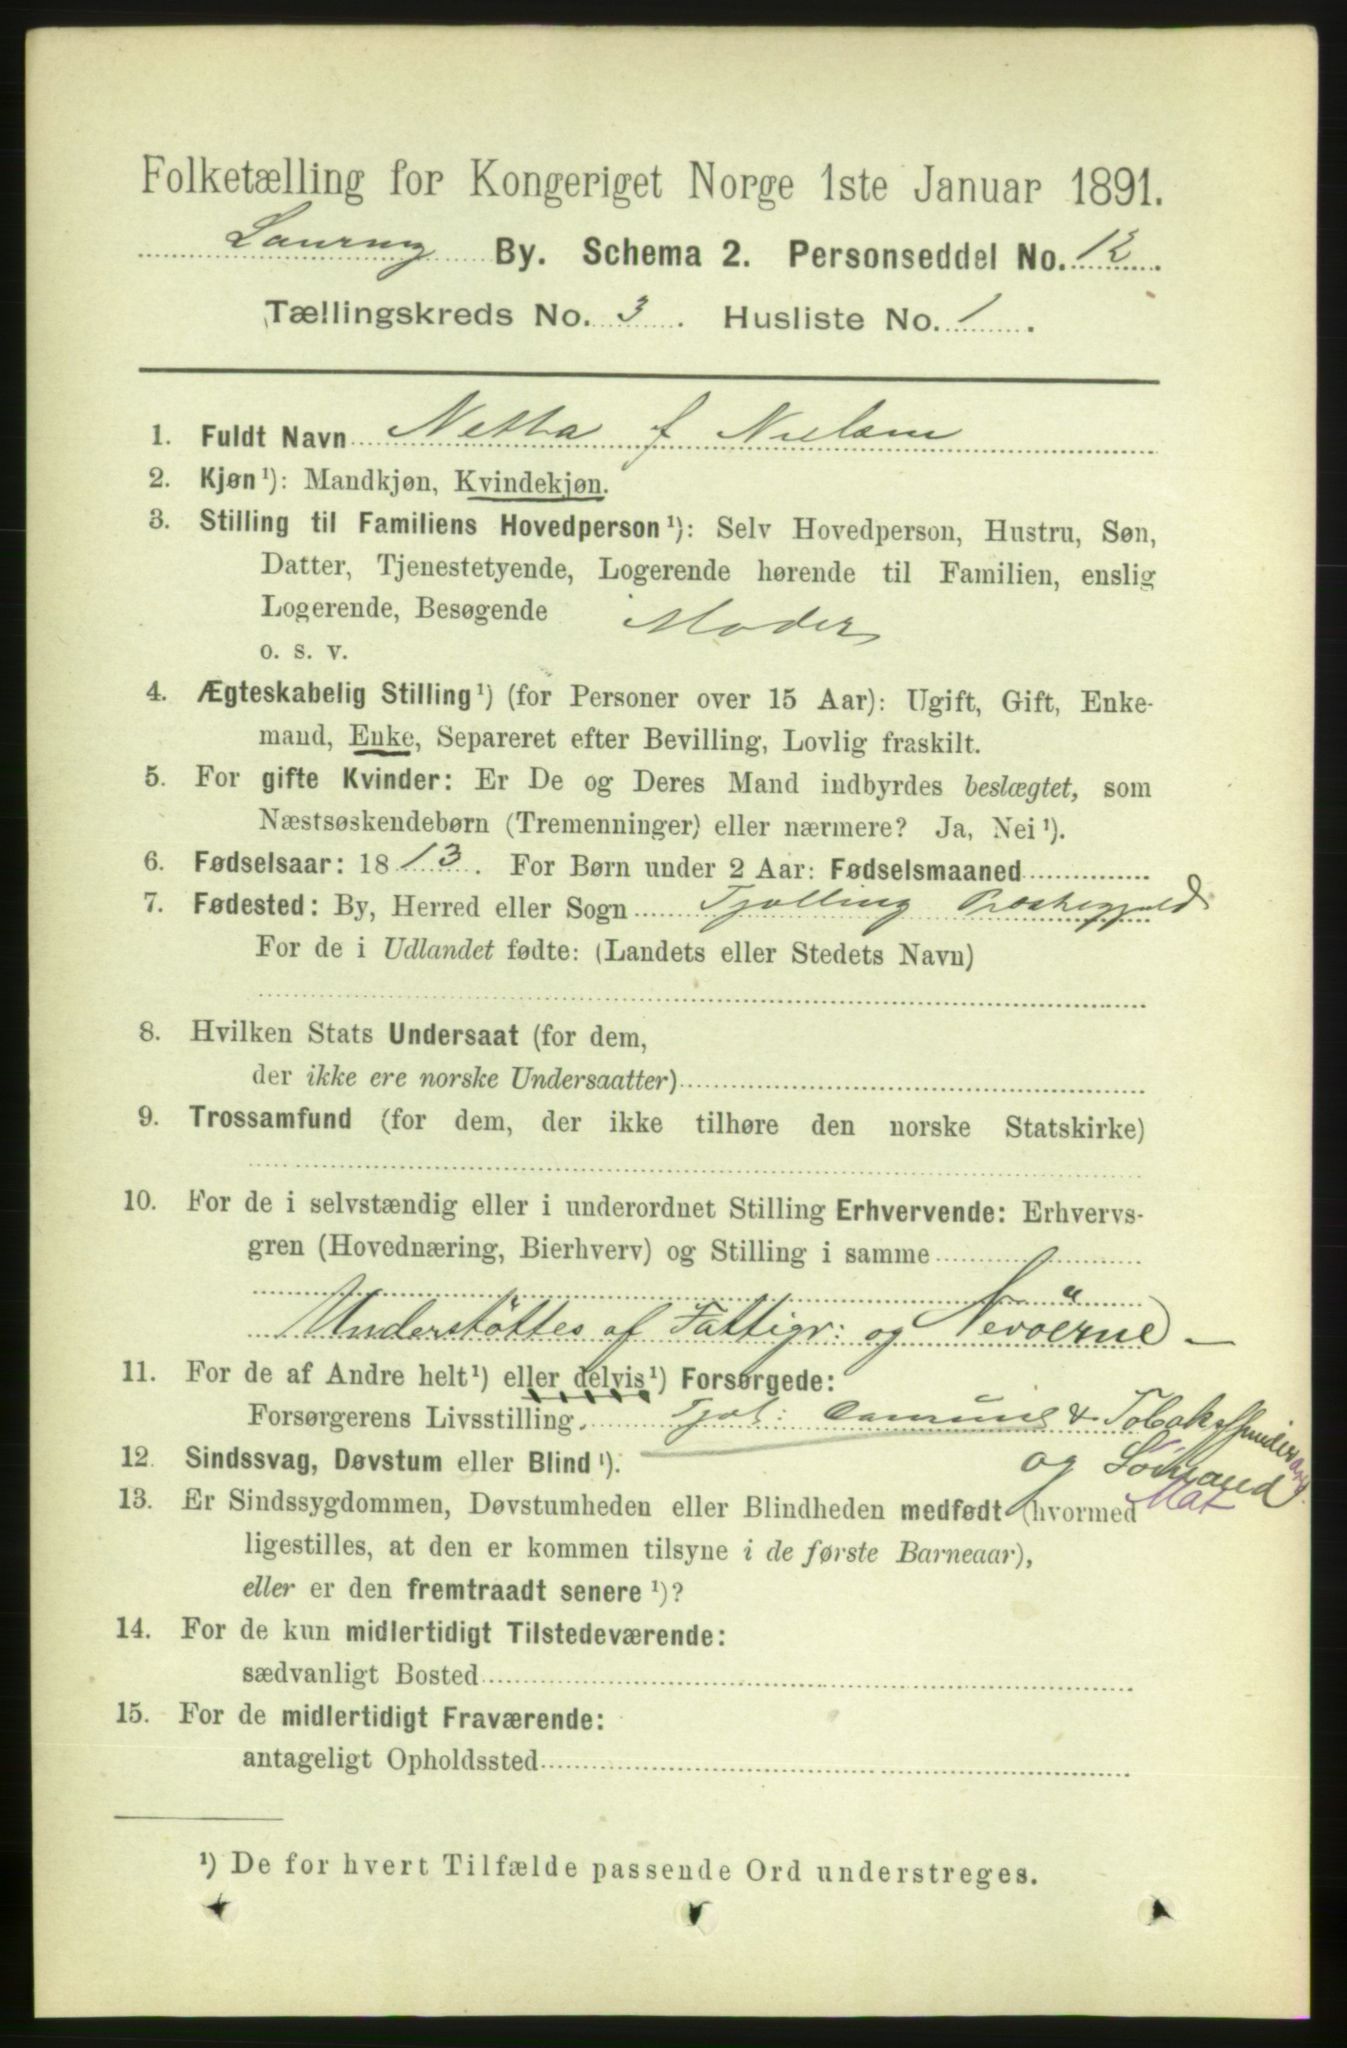 Folketælling for Kongeriget Norge 1ste Januar 1891.
Laurvig By. Schema 2. Personseddel No. 12.
Tællingskreds No. 3. Husliste No. 1.
1. Fuldt Navn Netta f Nielsen
2. Kjøn¹): Mandkjøn, Kvindekjøn.
3. Stilling til Familiens Hovedperson¹): Selv Hovedperson, Hustru, Søn,
Datter, Tjenestetyende, Logerende hørende til Familien, enslig
Logerende, Besøgende Moder
o. s. v.
4. Ægteskabelig Stilling¹) (for Personer over 15 Aar): Ugift, Gift, Enke-
mand, Enke, Separeret efter Bevilling, Lovlig fraskilt.
5. For gifte Kvinder: Er De og Deres Mand indbyrdes beslægtet, som
Næstsøskendebørn (Tremenninger) eller nærmere? Ja, Nei¹).
6. Fødselsaar: 1813. For Børn under 2 Aar: Fødselsmaaned
7. Fødested: By, Herred eller Sogn Tjølling Præstegjeld
For de i Udlandet fødte: (Landets eller Stedets Navn)
8. Hvilken Stats Undersaat (for dem,
der ikke ere norske Undersaatter)
9. Trossamfund (for dem, der ikke tilhøre den norske Statskirke)
10. For de i selvstændig eller i underordnet Stilling Erhvervende: Erhvervs-
gren (Hovednæring, Bierhverv) og Stilling i samme
Understöttes af Fattigv: og
11. For de af Andre helt¹) eller delvis¹) Forsørgede:
Forsørgerens Livsstilling Tjøl:
og Sömand
12. Sindssvag, Døvstum eller Blind¹).
Mat
13. Er Sindssygdommen, Døvstumheden eller Blindheden medfødt (hvormed
ligestilles, at den er kommen tilsyne i de første Barneaar),
eller er den fremtraadt senere¹)?
14. For de kun midlertidigt Tilstedeværende:
sædvanligt Bosted
15. For de midlertidigt Fraværende:
antageligt Opholdssted
¹) De for hvert Tilfælde passende Ord understreges.